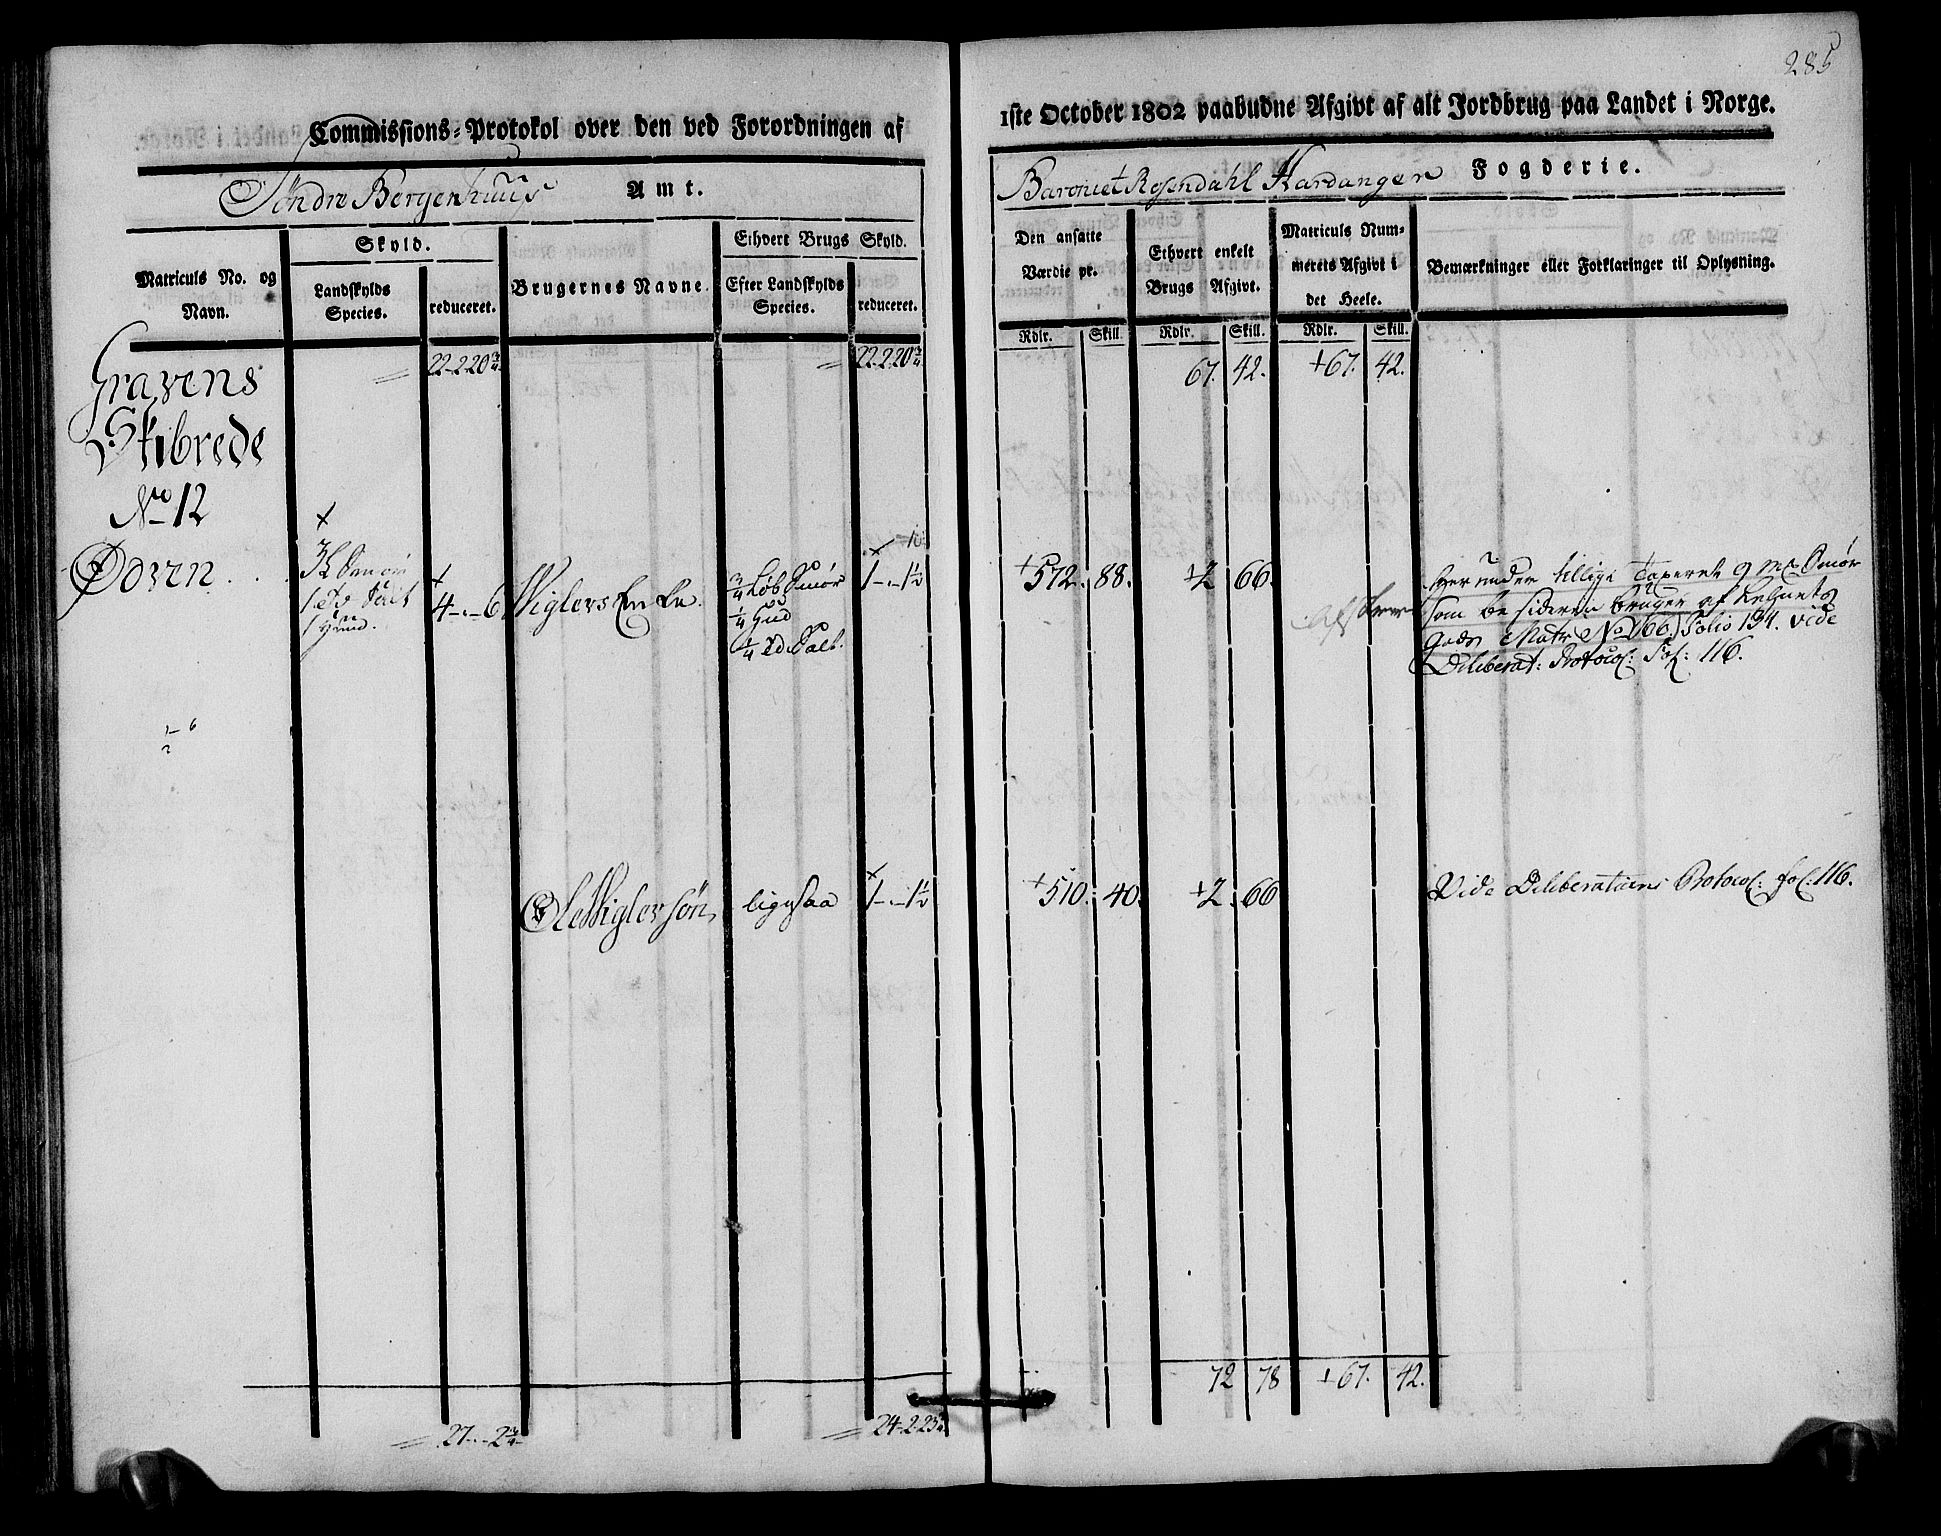 285
Commissions-Protokol over den ved Forordningen af
1ste October 1802 paabudne Afgivt af alt Jordbrug paa Landet i Norge.
Söndre Bergenhuus Amt.
Baroniet Rosendahl Hardanger Fogderie.
Matriculs No. og Navn.
Skyld.
Landskylds Species.
reduceret.
Brugernes Navne.
Ethvert Brugs Skyld.
Efter Landskylds Species.
reduceret.
Den ansatte Værdie pr.
Ethvert enkelt Brugs Afgivt.
Matriculs Nummerets Afgivt i det Heele.
Bemærkninger eller Forklaringer til Oplysning.
Rdlr. Skill. Rdlr. Skill. Rdlr. Skill.
22-2-20¾ 22-2-20¾ 67. 42. +67. 42.
Gravens
Skibrede
No 12
Ødven
3 L Smör
1 Td Salt
1 Hud.
4-.-6
Wiglevs Enke.
¾ Løb Smør
¼ Hud
¼ Td Salt.
1-.-1½
+572. 88. +2 66.
Herunder tillige Taperet 9 Mk Smør
som besideren bruger af
Gods Matr No 166. Folio 134. vide
Deliberat: Protocol: Fol: 116.
Ole Wiglevsøn, ligesaa 1-.-1½ +510. 40. +2. 66 Vide Deliberations Protocol: Fol: 116.
72 78 +67. 42.
27-.-2¾ 24-2-23¾